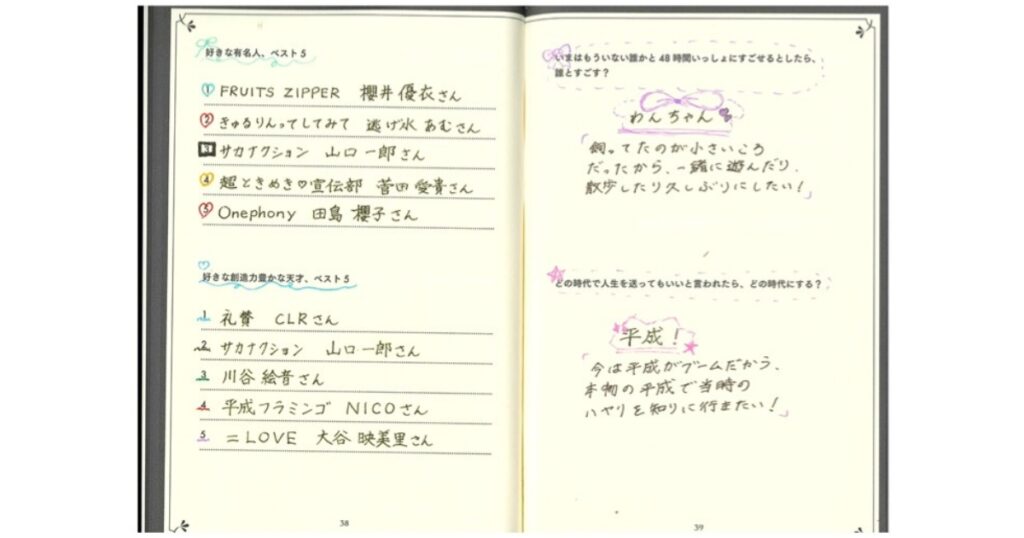 好きな有名人、ベスト5
1 FRUITS ZIPPER 櫻井優衣さん
2 きゅるりんってしてみて 逃げ水あむさん
サカナクション 山口一郎さん
4 超ときめき♡宣伝部 菅田愛貴さん
5 Onephony 田島櫻子さん
好きな創造力豊かな天才、ベスト5
1 礼賛 CLRさん
2 サカナクション 山口一郎さん
3 川谷絵音さん
4 平成フラミンゴ NICOさん
5 =LOVE 大谷映美里さん
38
いまはもういない誰かと48時間いっしょにすごせるとしたら、
誰とすごす?
わんちゃん
「飼ってたのが小さいころ
だったから、一緒に遊んだり、
散歩したり久しぶりにしたい!」
どの時代で人生を送ってもいいと言われたら、どの時代にする?
平成!
「今は平成がブームだから、
本物の平成で当時の
ハヤリを知りに行きたい!」
39